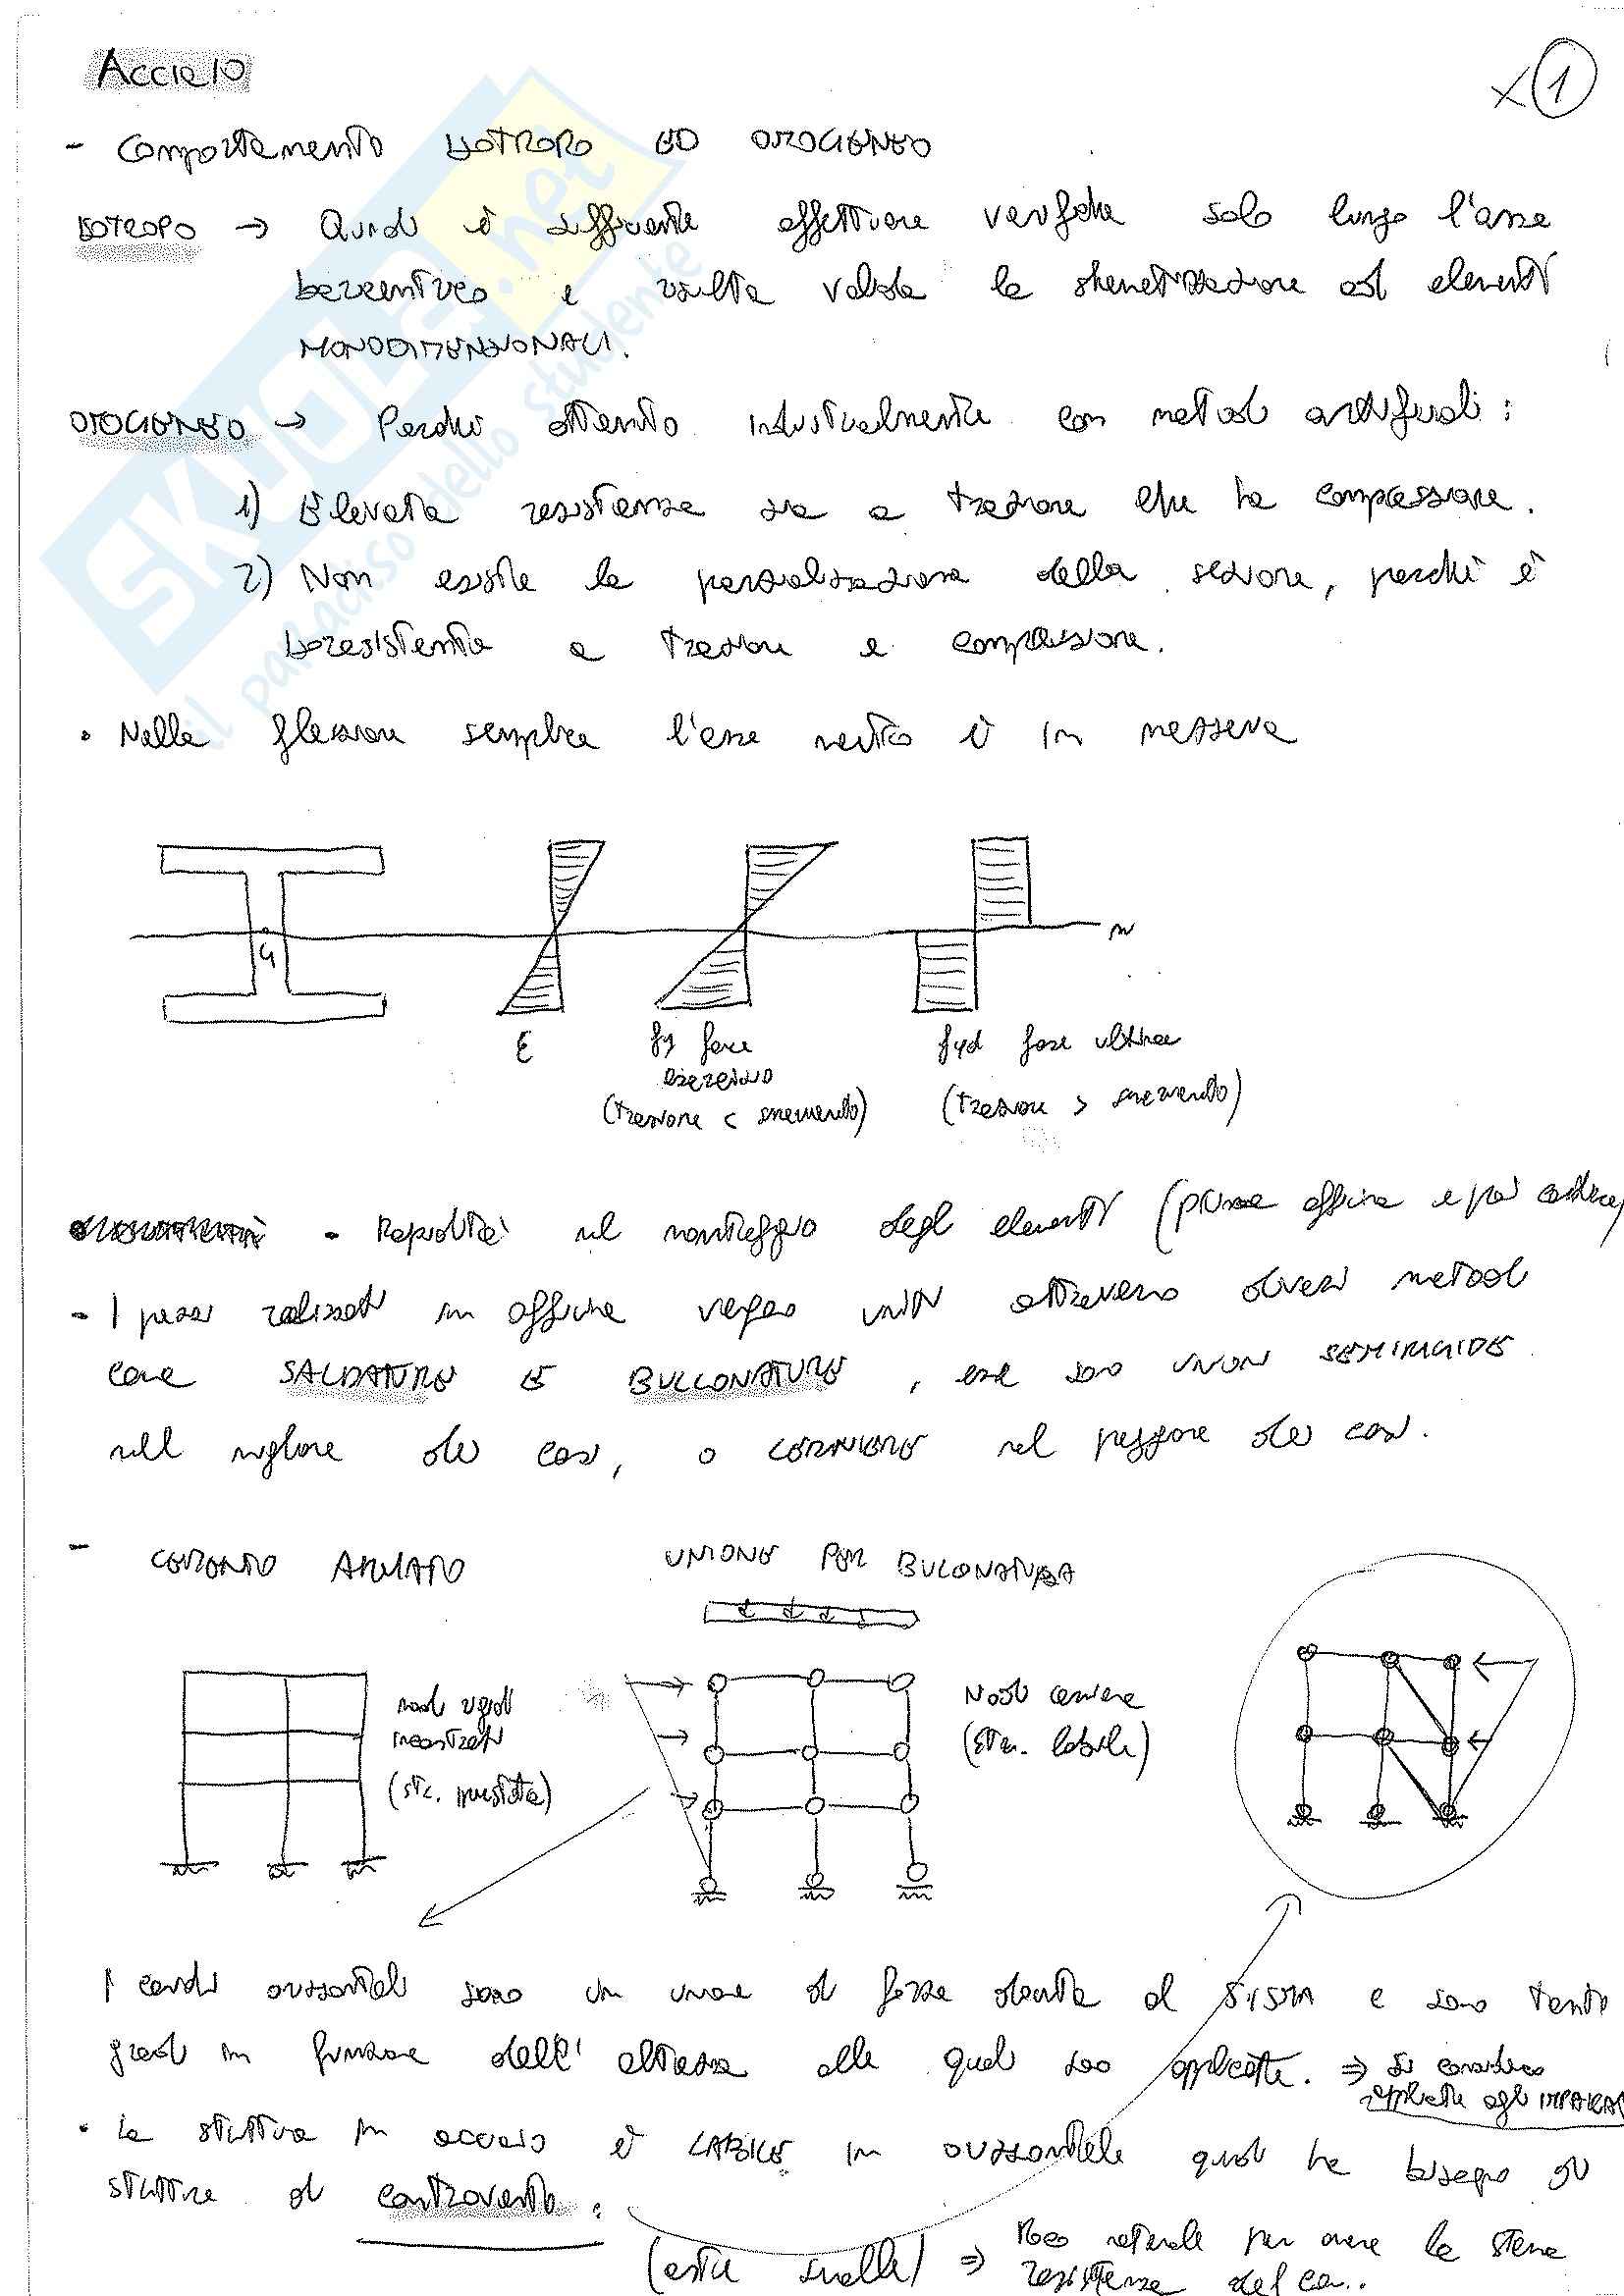 Acciaio
x 1
- Comportamento ISOTROPO ED OMOGENEO
ISOTROPO → Quindi è sufficiente effettuare verifiche solo lungo l'asse
baricentrico e risulta valida la schematizzazione ad elementi
MONODIMENSIONALI.
OMOGENEO → Perchè ottenuto industrialmente con metodi artificiali:
1) Elevata resistenza sia a trazione che a compressione.
2) Non esiste la parzializzazione della sezione, perchè è
isoresistente a trazione e compressione.
• Nella flessione semplice l'asse neutro è in mezzeria
G
n
ε
fy fase
esercizio
(trazione < snervamento)
fyd fase ultima
(trazione > snervamento)
- Rapidità nel montaggio degli elementi (prima officina e poi cantiere)
- I pezzi realizzati in officina vengono uniti attraverso diversi metodi
come SALDATURE E BULLONATURE, che sono UNIONI SEMIRIGIDE
nel migliore dei casi, o CERNIERE nel peggiore dei casi.
- CEMENTO ARMATO
UNIONE PER BULLONATURA
nodi rigidi
incastrati
Nodi cerniere
(str. labile)
I carichi orizzontali sono in unione di forze dovute al SISMA e sono tanto
grandi in funzione dell'altezza alle quali sono applicate. ⇒ Si considerano
applicate agli IMPALCATI
• La struttura in acciaio è LABILE in orizzontale quindi ha bisogno di
strutture di controvento:
(aste snelle) ⇒ Meno materiale per avere la stessa
resistenza del ca..
SKUOLA.net
il paradiso dello studente